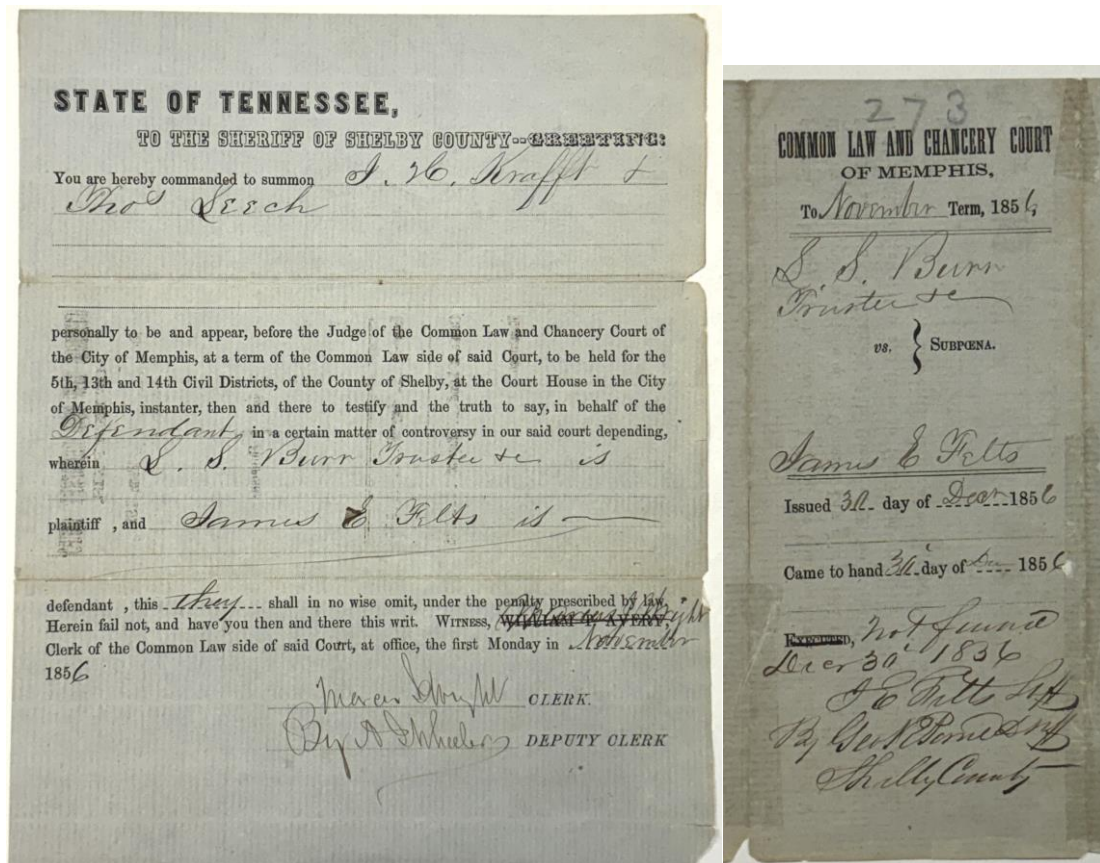 STATE OF TENNESSEE,
TO THE SHERIFF OF SHELBY COUNTY--GREETING:
You are hereby commanded to summon J. H. Krafft &
Thos Leech
personally to be and appear, before the Judge of the Common Law and Chancery Court of
the City of Memphis, at a term of the Common Law side of said Court, to be held for the
5th, 13th and 14th Civil Districts, of the County of Shelby, at the Court House in the City
of Memphis, instanter, then and there to testify and the truth to say, in behalf of the
Defendant in a certain matter of controversy in our said court depending,
wherein S. S. Burr Trustee &c is
plaintiff , and James E Felts is
defendant , this they shall in no wise omit, under the penalty prescribed by law.
Herein fail not, and have you then and there this writ. WITNESS, WILLIAM T. AVERY,
Clerk of the Common Law side of said Court, at office, the first Monday in November
1856
CLERK.
By A Wheeler DEPUTY CLERK
273
COMMON LAW AND CHANCERY COURT
OF MEMPHIS,
To November Term, 1856,
S. S. Burr
Trustee &c
vs. } SUBPŒNA.
James E Felts
Issued 3d day of Decr 1856
Came to hand 3d day of De 1856
EXECUTED, not found
Decr 3d 1856
J E Felts Shff
By Geo
Shelby County